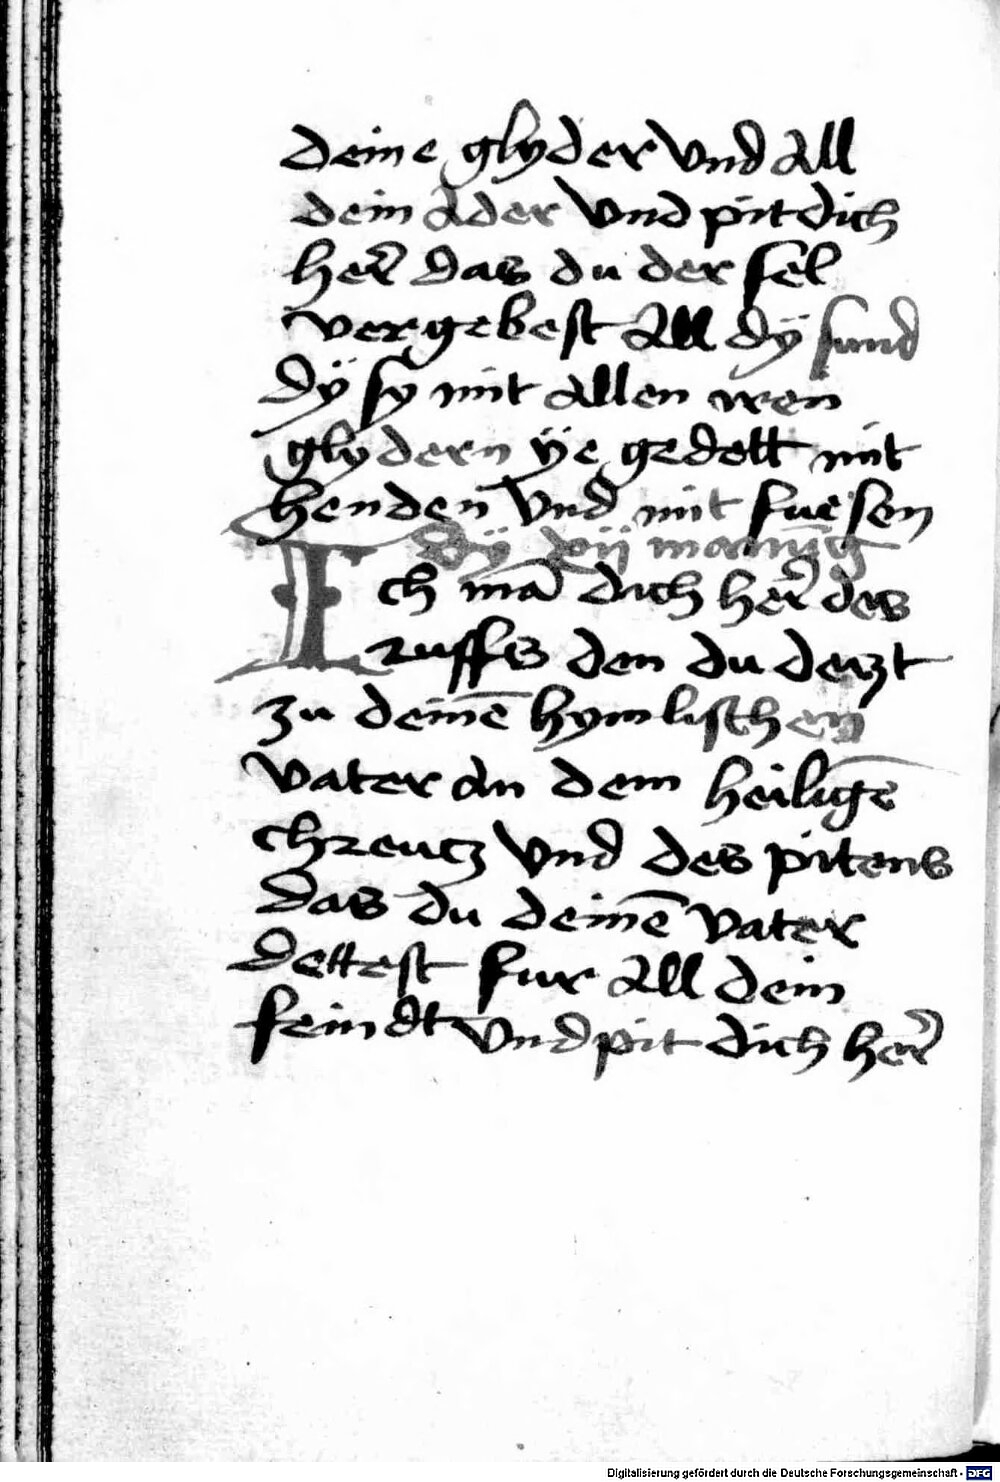 deine glyder vnd all
dein ader vnd pit dich
her̄ das du der sel
vergebest all dÿ sund
dÿ sy mit allen iren
glydern ÿe gedett mit
henden vnd mit fuesen
dÿ xij manūg
Ich mā dich her̄ des
ruffs den du
zu deinē hymlischen
vater an dem heiligē
chreucz vnd des pitens
das du deinē vater
dettest fur all dein
feindt vnd pit dich her̄
Digitalisierung gefördert durch die Deutsche Forschungsgemeinschaft - DFG